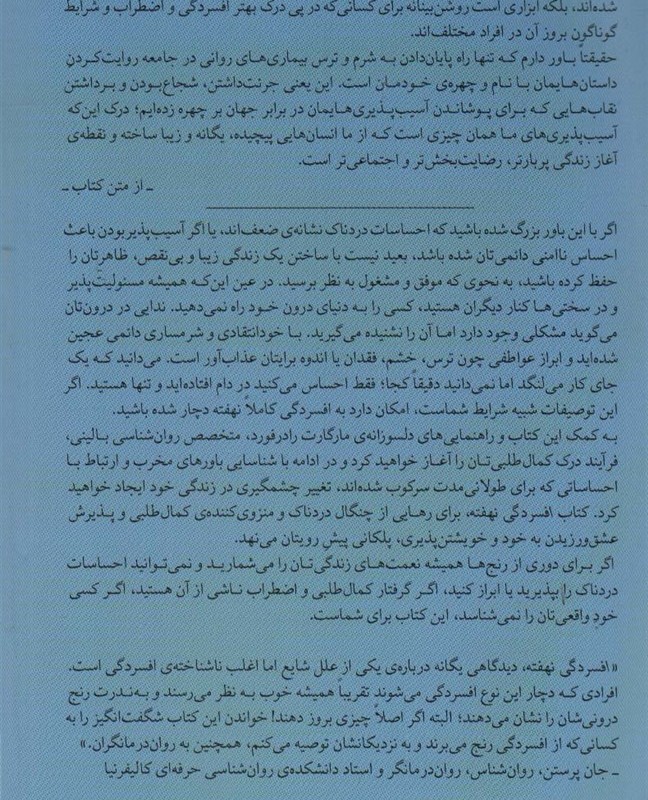 شده‌اند، بلکه ابزاری است روشن‌بینانه برای کسانی‌که در پی درک بهتر افسردگی و اضطراب و شرایط
گوناگون بروز آن در افراد مختلف‌اند.
حقیقتاً باور دارم که تنها راه پایان‌دادن به شرم و ترس بیماری‌های روانی در جامعه روایت‌کردنِ
داستان‌هایمان با نام و چهره‌ی خودمان است. این یعنی جرئت‌داشتن، شجاع‌بودن و برداشتن
نقاب‌هایی که برای پوشاندن آسیب‌پذیری‌هایمان در برابر جهان بر چهره زده‌ایم؛ درک این‌که
آسیب‌پذیری‌های ما همان چیزی است که از ما انسان‌هایی پیچیده، یگانه و زیبا ساخته و نقطه‌ی
آغاز زندگی پربارتر، رضایت‌بخش‌تر و اجتماعی‌تر است.
ـ از متن کتاب ـ
اگر با این باور بزرگ شده باشید که احساسات دردناک نشانه‌ی ضعف‌اند، یا اگر آسیب‌پذیر بودن باعث
احساس ناامنی دائمی‌تان شده باشد، بعید نیست با ساختن یک زندگی زیبا و بی‌نقص، ظاهرتان را
حفظ کرده باشید، به نحوی که موفق و مشغول به نظر برسید. در عین این‌که همیشه مسئولیت‌پذیر
و در سختی‌ها کنار دیگران هستید، کسی را به دنیای درون خود راه نمی‌دهید. ندایی در درون‌تان
می‌گوید مشکلی وجود دارد اما آن را نشنیده می‌گیرید. با خودانتقادی و شرمساری دائمی عجین
شده‌اید و ابراز عواطفی چون ترس، خشم، فقدان یا اندوه برایتان عذاب‌آور است. می‌دانید که یک
جای کار می‌لنگد اما نمی‌دانید دقیقاً کجا؛ فقط احساس می‌کنید در دام افتاده‌اید و تنها هستید. اگر
این توصیفات شبیه شرایط شماست، امکان دارد به افسردگی کاملاً نهفته دچار شده باشید.
به کمک این کتاب و راهنمایی‌های دلسوزانه‌ی مارگارت رادرفورد، متخصص روان‌شناسی بالینی،
فرآیند درک کمال‌طلبی‌تان را آغاز خواهید کرد و در ادامه با شناسایی باورهای مخرب و ارتباط با
احساساتی که برای طولانی‌مدت سرکوب شده‌اند، تغییر چشمگیری در زندگی خود ایجاد خواهید
کرد. کتاب افسردگی نهفته، برای رهایی از چنگال دردناک و منزوی‌کننده‌ی کمال‌طلبی و پذیرش
عشق‌ورزیدن به خود و خویشتن‌پذیری، پلکانی پیشِ رویتان می‌نهد.
اگر برای دوری از رنج‌ها همیشه نعمت‌های زندگی‌تان را می‌شمارید و نمی‌توانید احساسات
دردناک را بپذیرید یا ابراز کنید، اگر گرفتار کمال‌طلبی و اضطراب ناشی از آن هستید، اگر کسی
خودِ واقعی‌تان را نمی‌شناسد، این کتاب برای شماست.
«افسردگی نهفته، دیدگاهی یگانه درباره‌ی یکی از علل شایع اما اغلب ناشناخته‌ی افسردگی است.
افرادی که دچار این نوع افسردگی می‌شوند تقریباً همیشه خوب به نظر می‌رسند و به‌ندرت رنج
درونی‌شان را نشان می‌دهند؛ البته اگر اصلاً چیزی بروز دهند! خواندن این کتاب شگفت‌انگیز را به
کسانی‌که از افسردگی رنج می‌برند و به نزدیکانشان توصیه می‌کنم، همچنین به روان‌درمانگران.»
ـ جان پرستن، روان‌شناس، روان‌درمانگر و استاد دانشکده‌ی روان‌شناسی حرفه‌ای کالیفرنیا